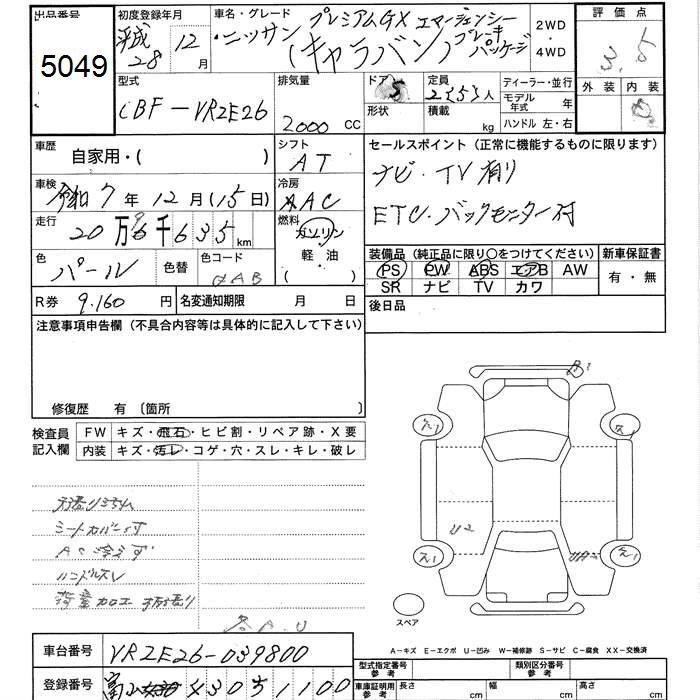 出品番号 初度登録年月 車名・グレード 評価点
5049 平成28 12月 ニッサン (キャラバン) プレミアムGX エマージェンシーブレーキパッケージ 2WD・4WD 3.5
型式 排気量 ドア 定員 ディーラー・並行 外装 内装
CBF-VR2E26 2000 CC 5 形状 2353人 積載 kg モデル年式 年
ハンドル 左・右
車歴 シフト セールスポイント (正常に機能するものに限ります)
自家用・( ) AT ナビ・TV有り
車検 令和7年12月(15日) 冷房 AAC ETC・バックモニター付
走行 20万 千635km 燃料 ガソリン・軽油 ( )
装備品 (純正品に限り○をつけてください) 新車保証書
色 パール 色替 色コード QAB
PS PW ABS エアB AW 有・無
SR ナビ TV カワ
R券 9,160円 名変通知期限 月 日 後日品
注意事項申告欄 (不具合内容等は具体的に記入して下さい)
修復歴 有 〔箇所 〕
検査員記入欄 FW キズ・飛石・ヒビ割・リペア跡・X要
内装 キズ・汚レ・コゲ・穴・スレ・キレ・破レ
シートカバー付
AC冷えず
ハンドルスレ
荷室加工
各A.U
U2
スペア
A-キズ E-エクボ U-凹み W-補修跡 S-サビ C-腐食 XX-交換済
車台番号 VR2E26-039800
型式指定番号 参考 類別区分番号 参考
登録番号 富山 1100
車庫証明用参考 長さ cm 幅 cm 高さ cm